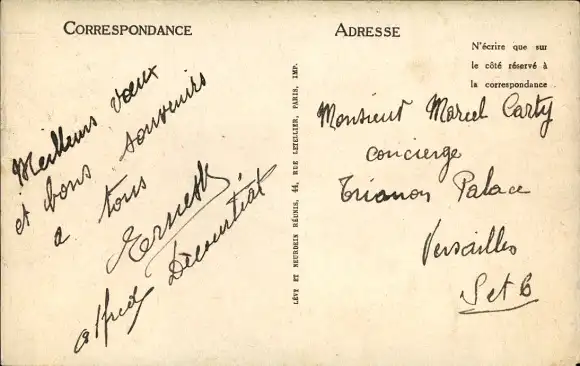 CORRESPONDANCE
Meilleurs vœux
et bons souvenirs
a tous
Ernest
Alfred
LÉVY ET NEURDEIN RÉUNIS, 44, RUE LETELLIER, PARIS, IMP.
ADRESSE
N'écrire que sur
le côté réservé à
la correspondance
Monsieur Marcel Carty
concierge
Trianon Palace
Versailles
S et O